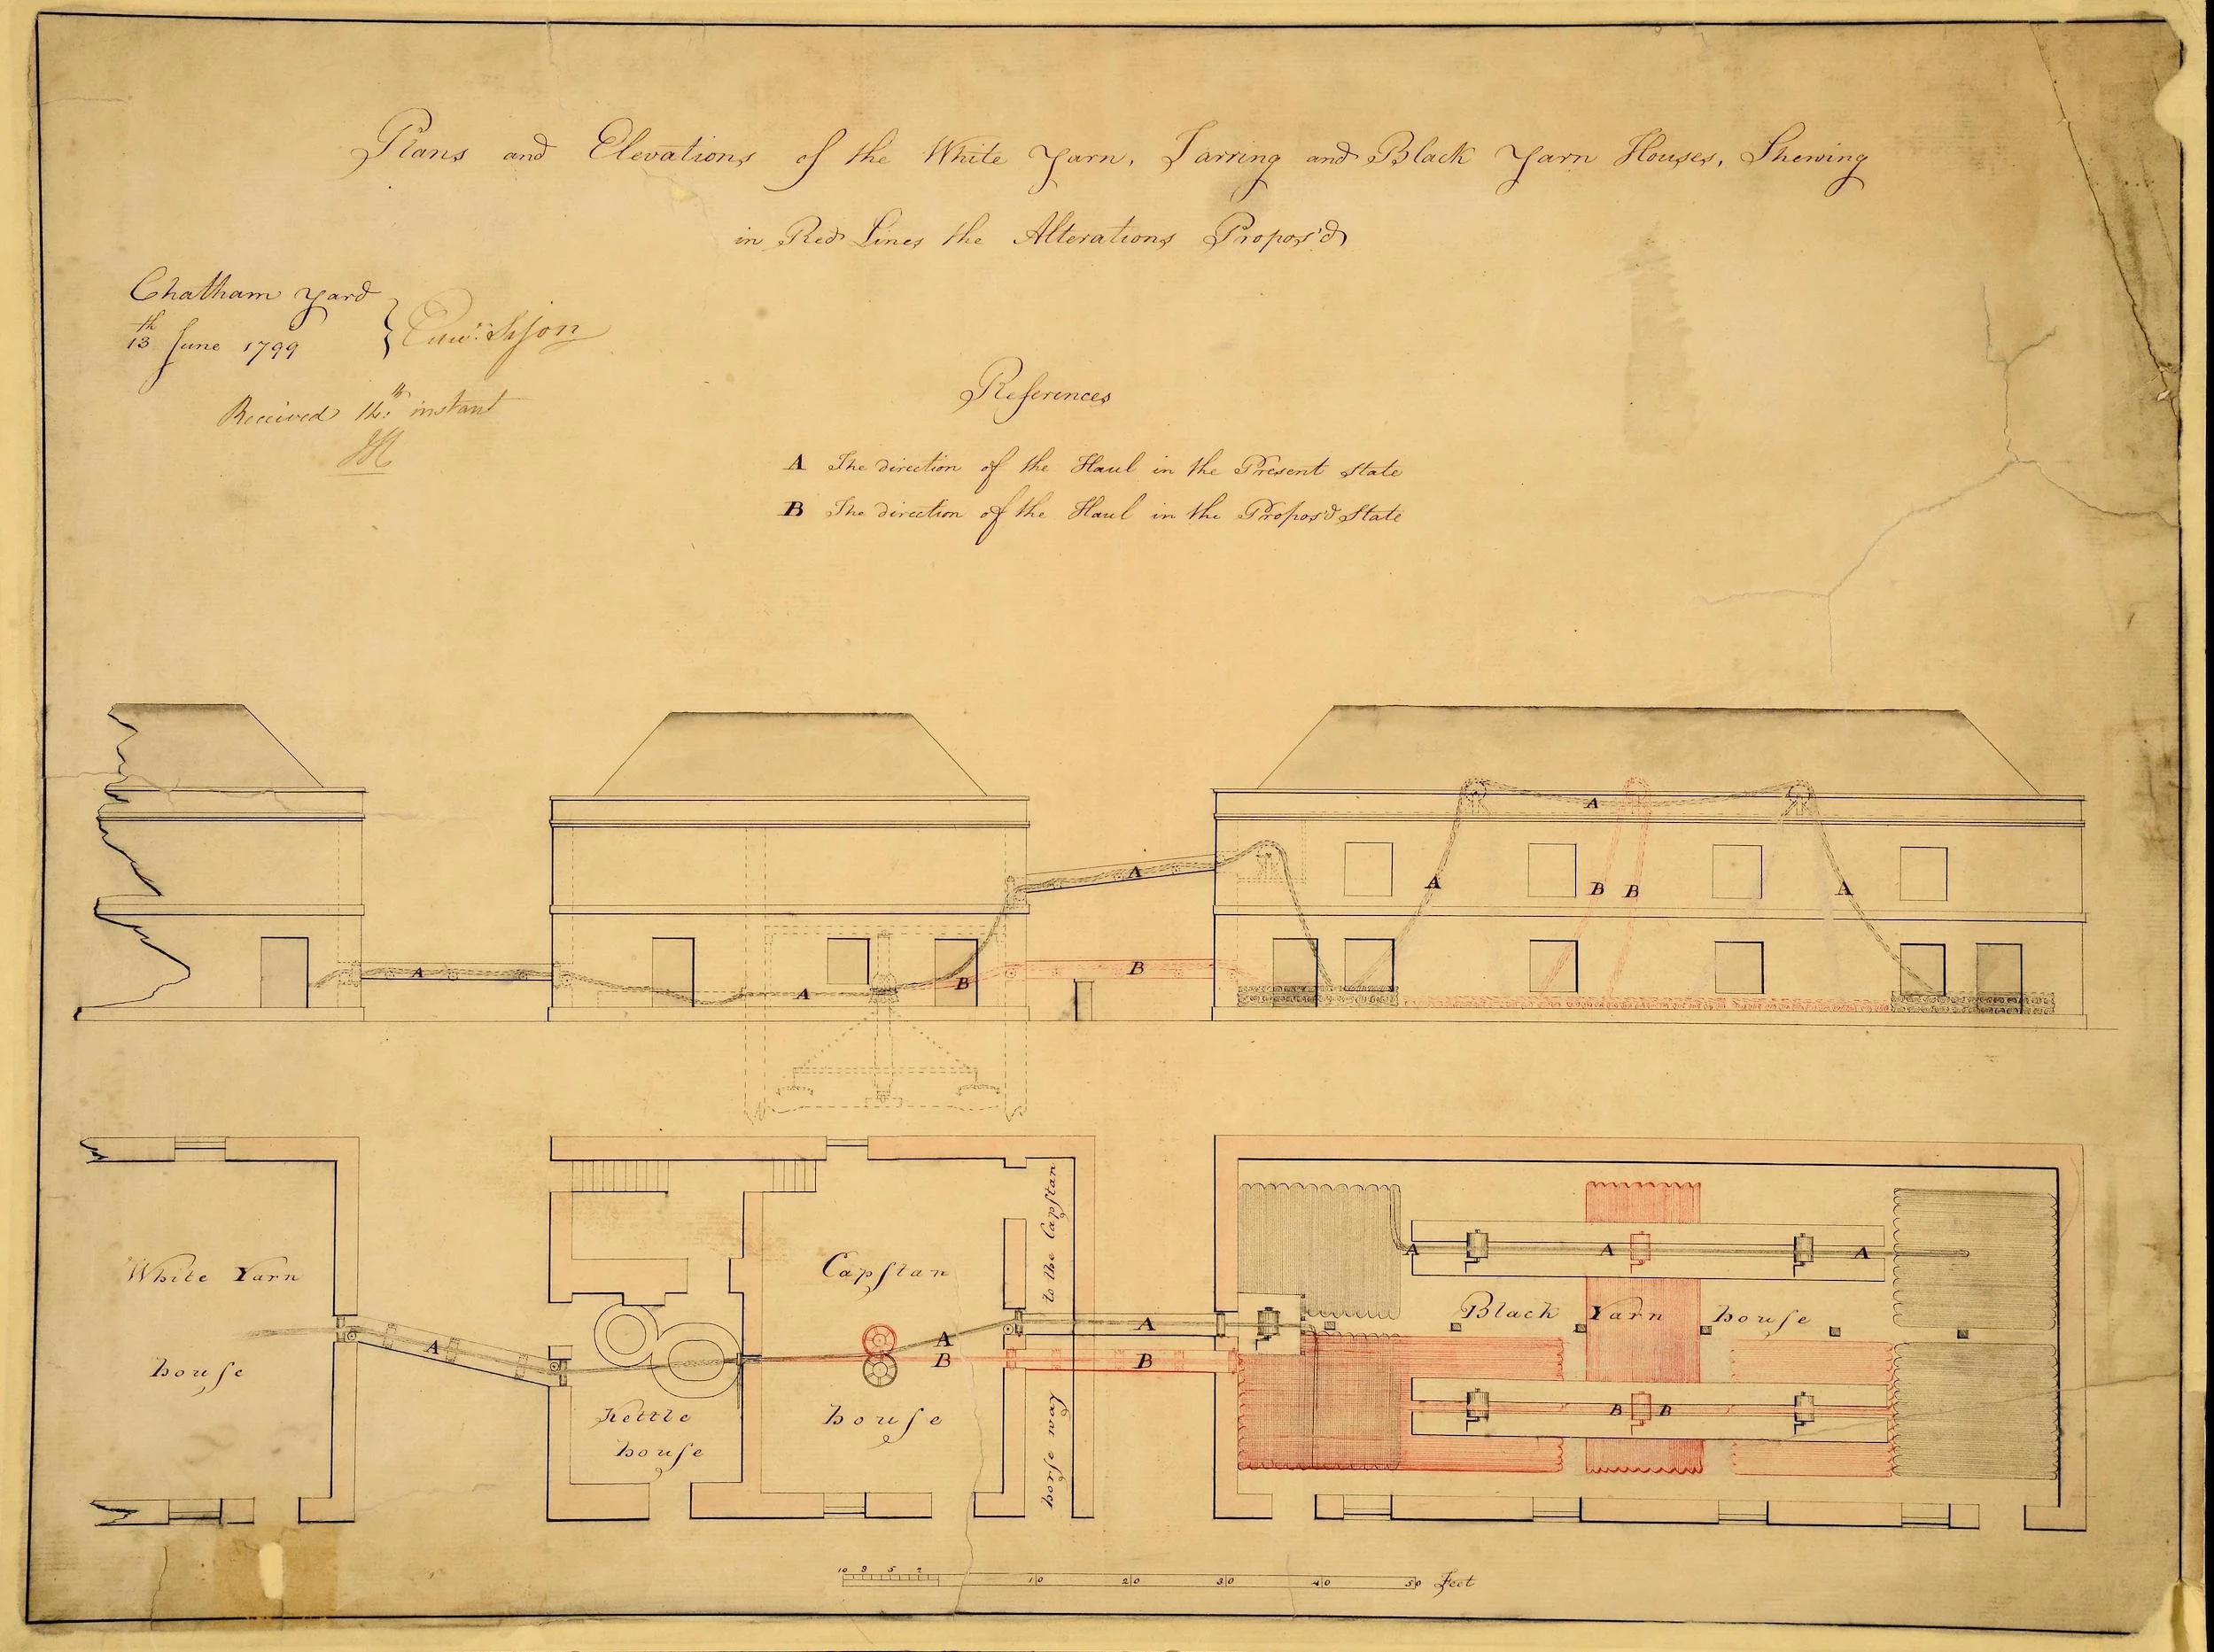 Plans and Elevations of the White Yarn, Tarring and Black Yarn Houses, Shewing
in Red Lines the Alterations Propos'd
Chatham Yard
13th June 1799
Edwd: Sison
Received 14th instant
References
A The direction of the Haul in the Present State
B The direction of the Haul in the Propos'd State
A
A
B
A
B
A
A
B
B
A
White Yarn
house
A
Kettle
house
Capstan
house
A
B
to the Capstan
horse way
A
B
A
A
A
Black Yarn house
B
B
10 8 5 2 10 20 30 40 50 Feet